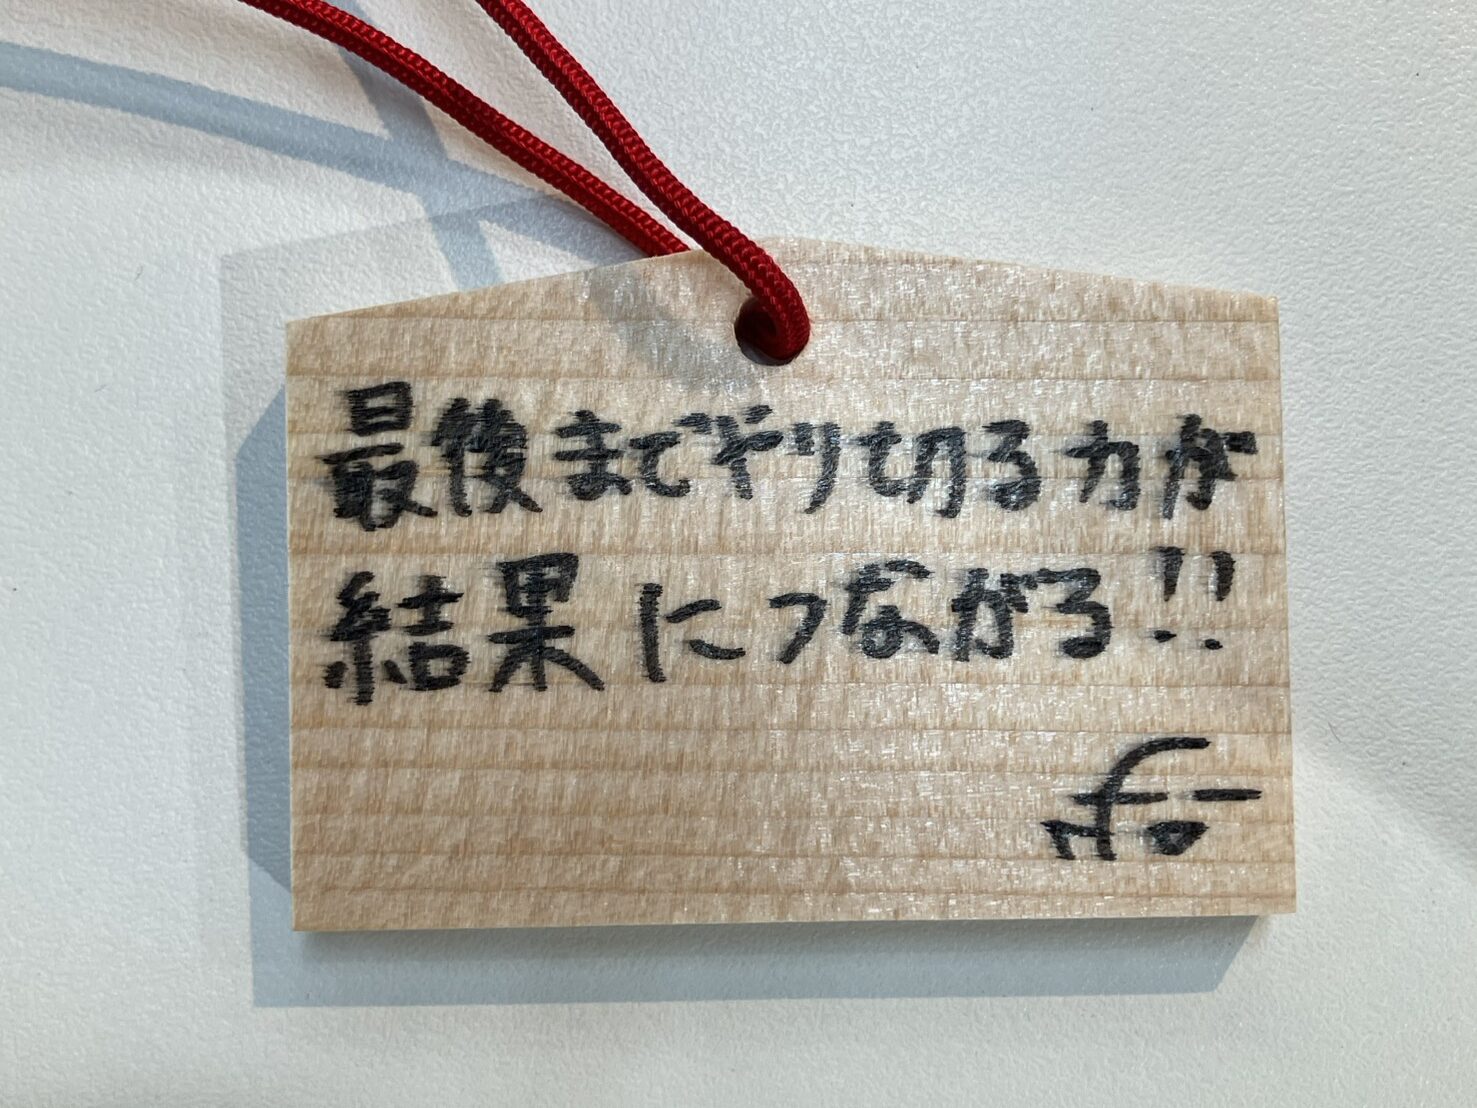 最後までやり切る力が
結果につながる!!